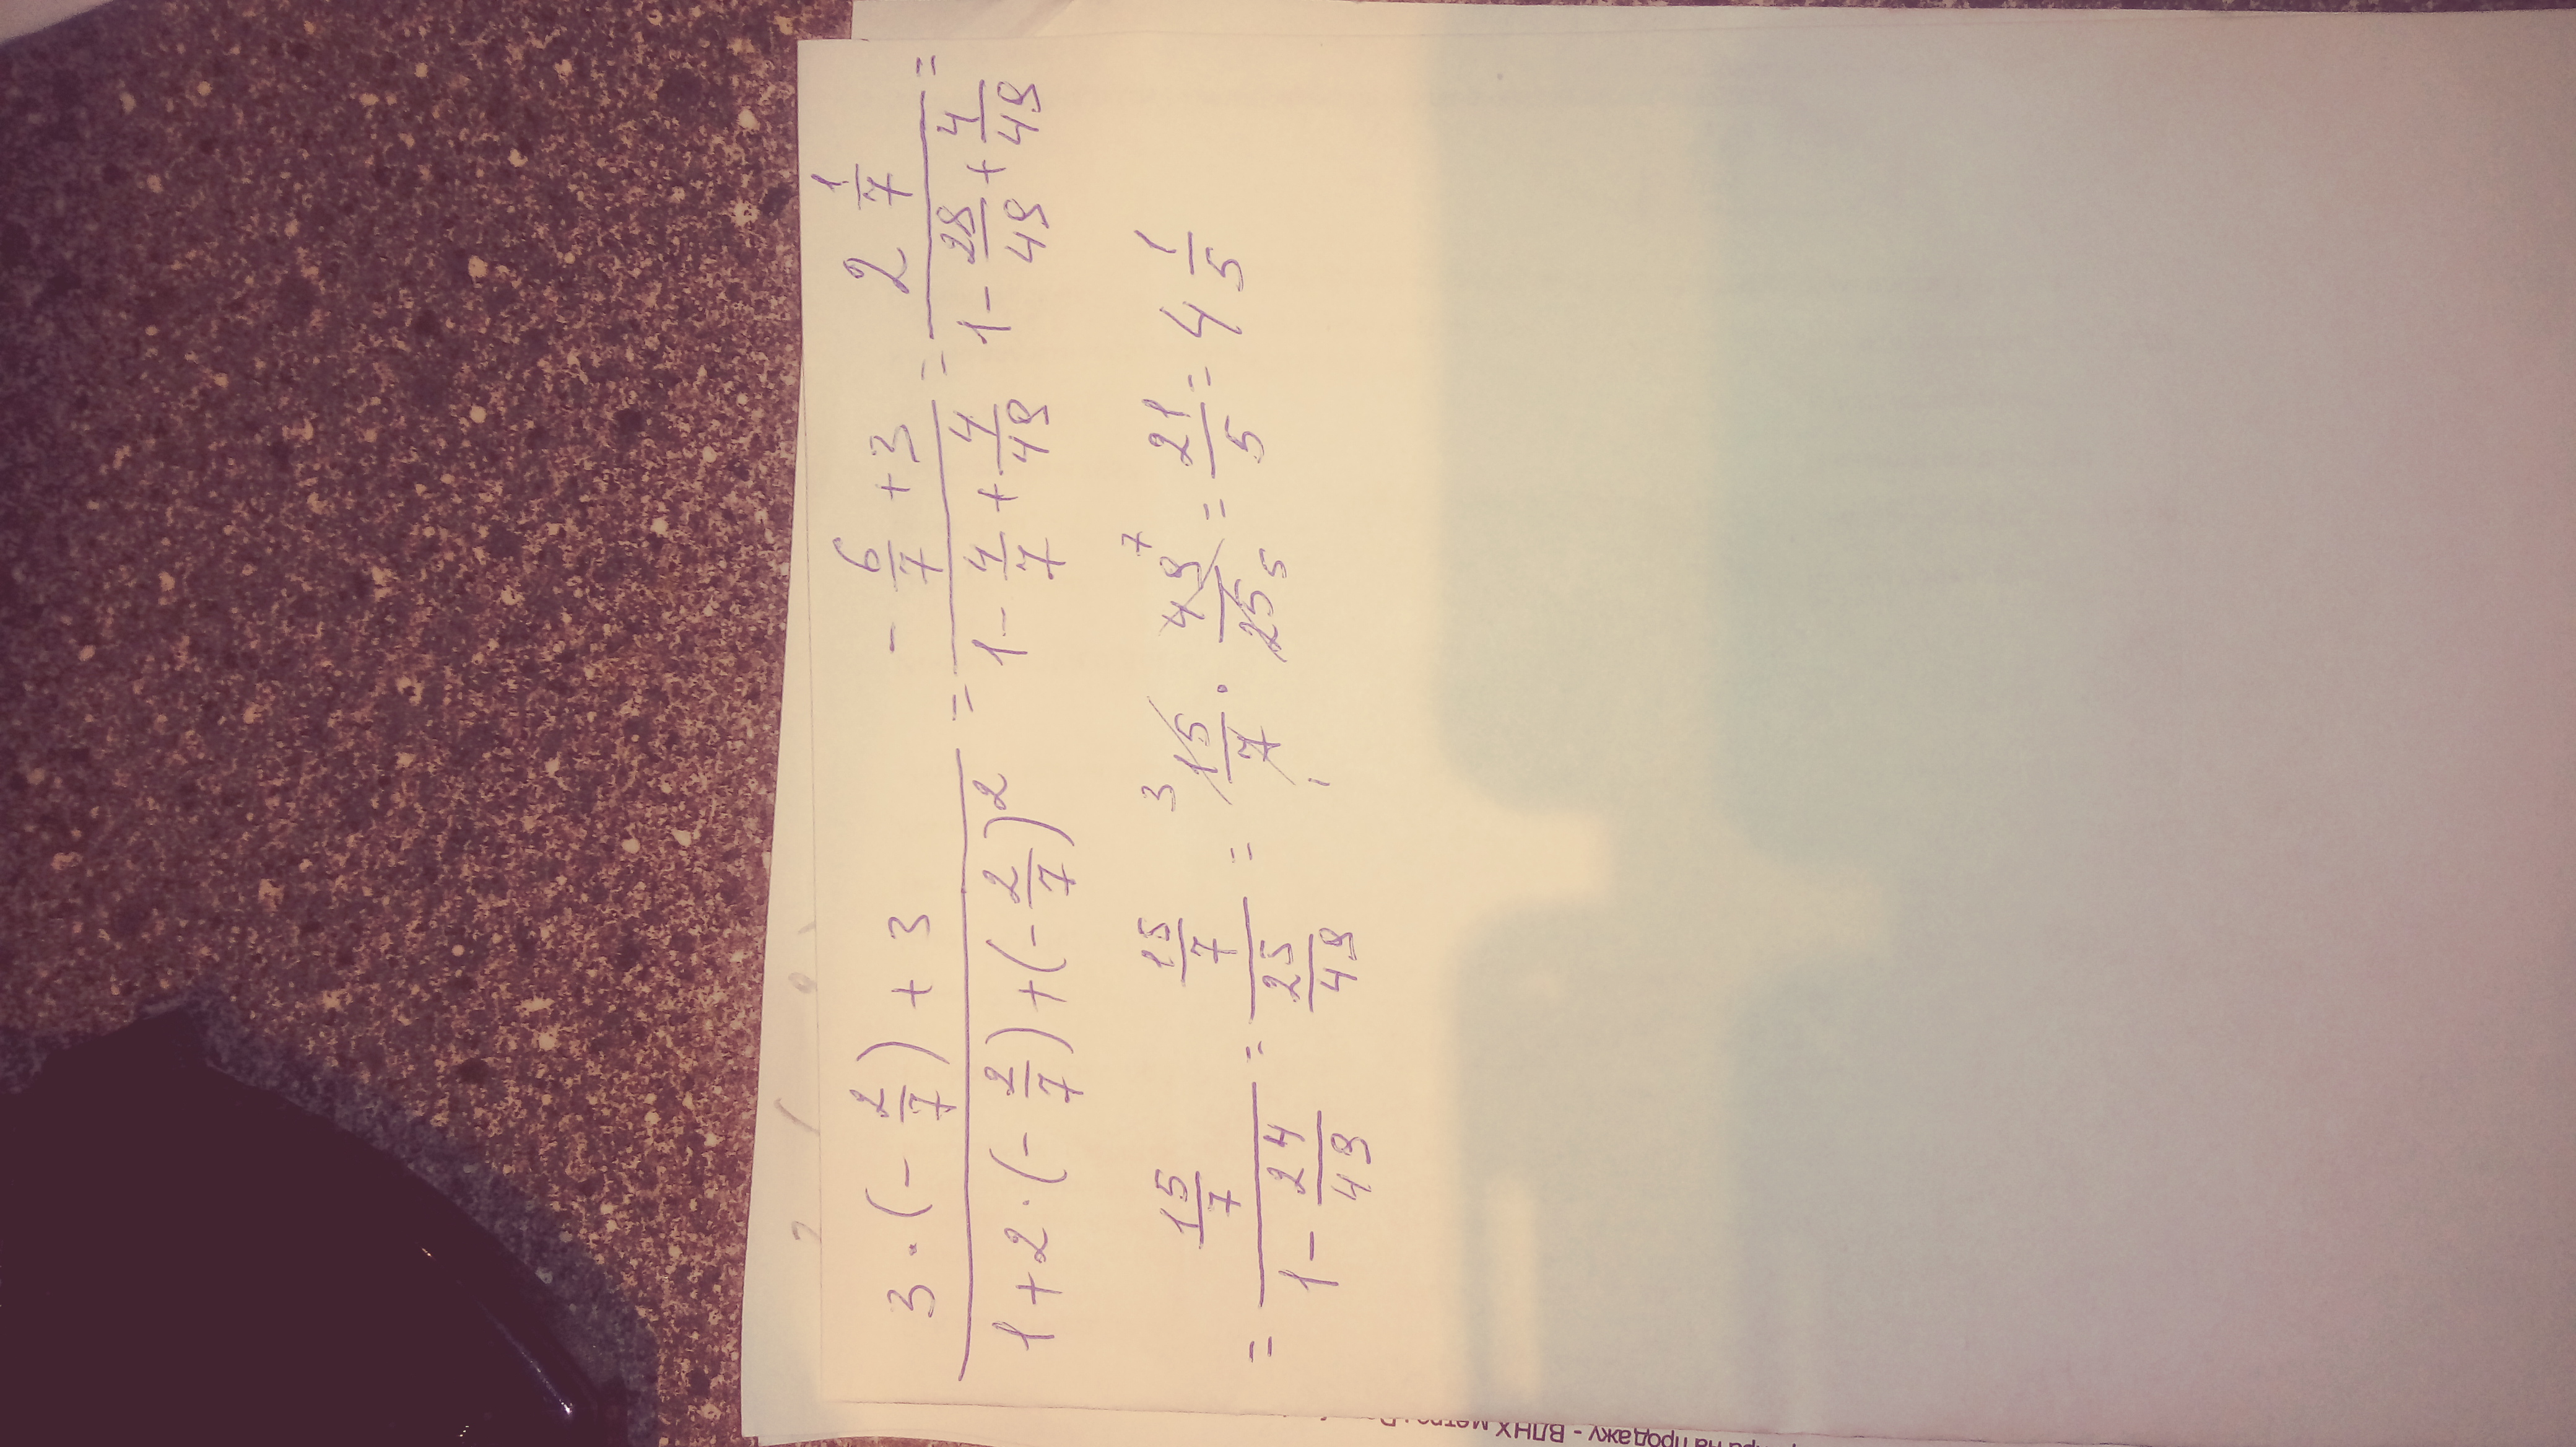 3·(-2/7)+3 / 1+2·(-2/7)+(-2/7)² = -6/7+3 / 1-4/7+4/49 = 2 1/7 / 1-28/49+4/49 =
= 15/7 / 1-24/49 = 15/7 / 25/49 = ³15/7₁ · 49⁷/25₅ = 21/5 = 4 1/5
на продажу - ВДНХ метро